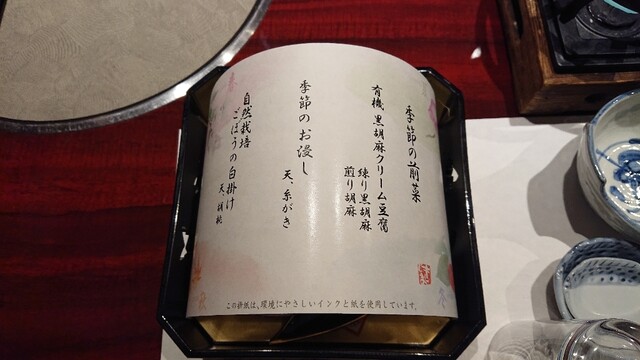 季節の前菜
有機 黒胡麻クリーム豆腐
練り黒胡麻
煎り胡麻
季節のお浸し
天、糸がき
自然栽培
ごぼうの白掛け
天、胡桃
この掛紙は、環境にやさしいインクと紙を使用しています。